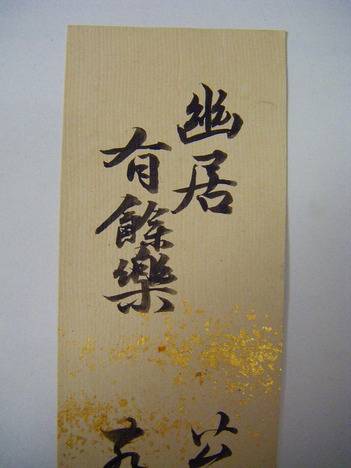 幽居
有餘樂